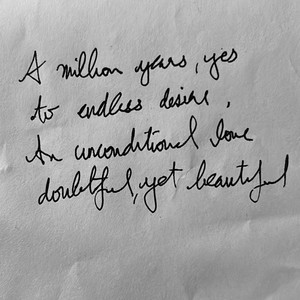 A million years, yes
to endless desire,
An unconditional love
doubtful, yet beautiful